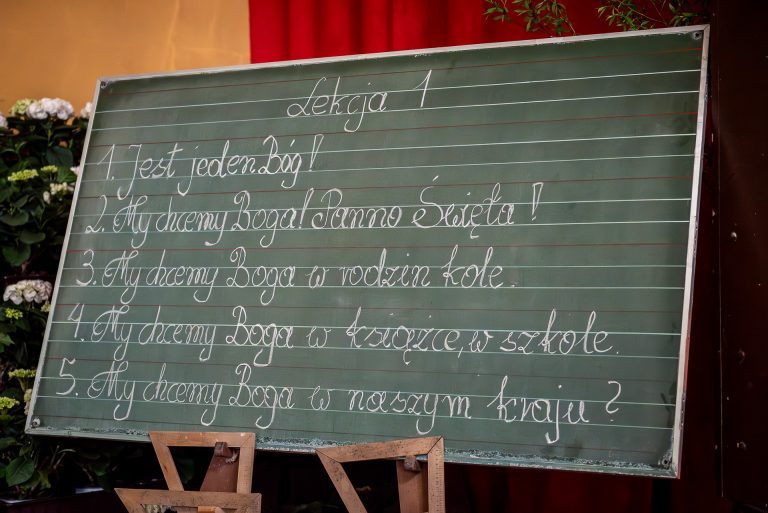 Lekcja 1
1. Jest jeden Bóg!
2. My chcemy Boga! Panno Święta!
3. My chcemy Boga w rodzin kole.
4. My chcemy Boga w książce, w szkole.
5. My chcemy Boga w naszym kraju?